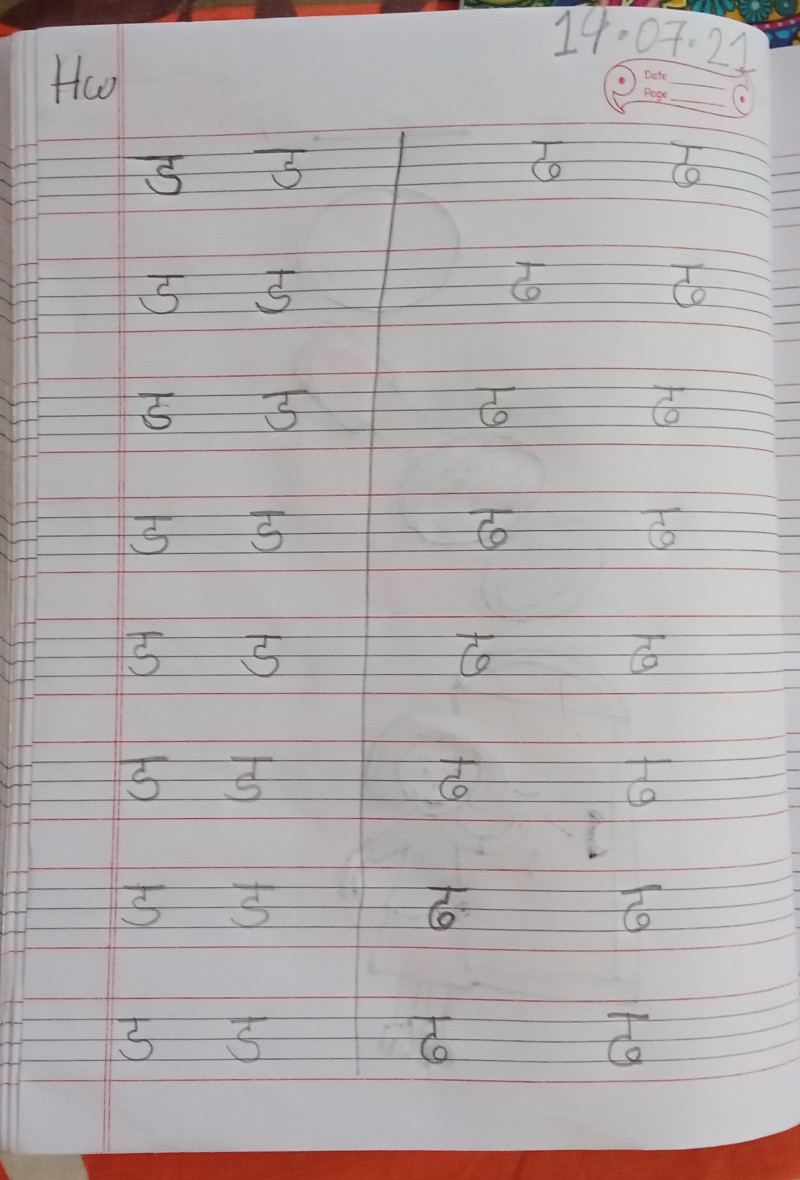 14.07.21
Hw
Date
Page
ड ड ढ ढ
ड ड ढ ढ
ड ड ढ ढ
ड ड ढ ढ
ड ड ढ ढ
ड ड ढ ढ
ड ड ढ ढ
ड ड ढ ढ